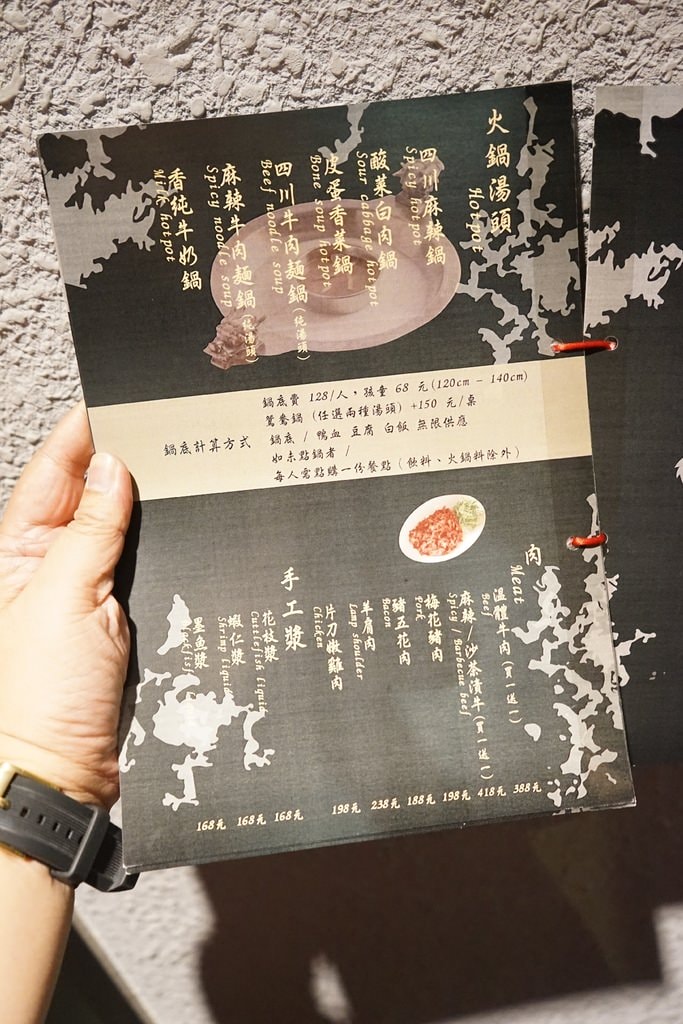 火鍋湯頭
Hotpot
四川麻辣鍋
Spicy hotpot
酸菜白肉鍋
Sour cabbage hotpot
皮蛋香菜鍋
Bone soup hotpot
四川牛肉麵鍋(純湯頭)
Beef noodle soup
麻辣牛肉麵鍋(純湯頭)
Spicy noodle soup
香純牛奶鍋
Milk hotpot
鍋底計算方式
鍋底費 128/人，孩童 68 元(120cm - 140cm)
鴛鴦鍋 (任選兩種湯頭) +150 元/桌
鍋底 / 鴨血 豆腐 白飯 無限供應
如未點鍋者 /
每人需點購一份餐點 (飲料、火鍋料除外)
肉
Meat
溫體牛肉(買一送一)
Beef
388元
麻辣/沙茶漬牛(買一送一)
Spicy / Barbecue beef
418元
梅花豬肉
Pork
198元
豬五花肉
Bacon
188元
羊肩肉
Lamp shoulder
238元
片刀嫩雞肉
Chicken
198元
手工漿
花枝漿
Cuttlefish
168元
蝦仁漿
Shrimp
168元
墨魚漿
168元